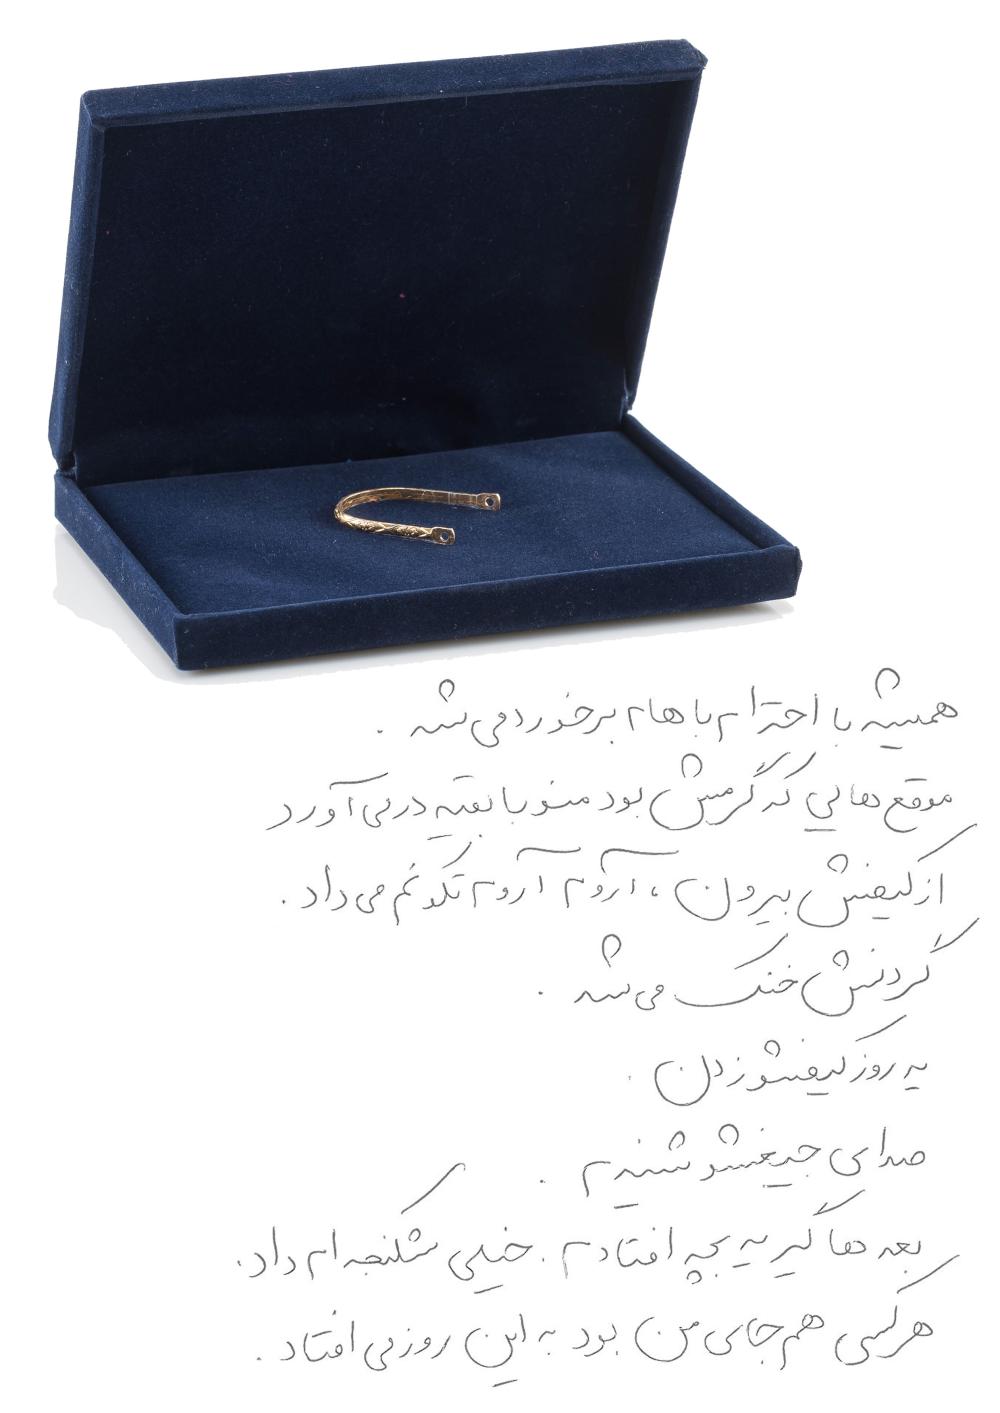 همیشه با احترام باهام برخورد می‌شد .
موقع هایی که گرمش بود منو با بقیه در می آورد
از کیفش بیرون ، آروم آروم تکونم می داد .
گردنش خنک می شد .
یه روز کیفشو زدن .
صدای جیغشو شنیدم .
بعد ها گیر یه بچه افتادم . خیلی شکنجه ام داد .
هر کسی هم جای من بود به این روز می افتاد .